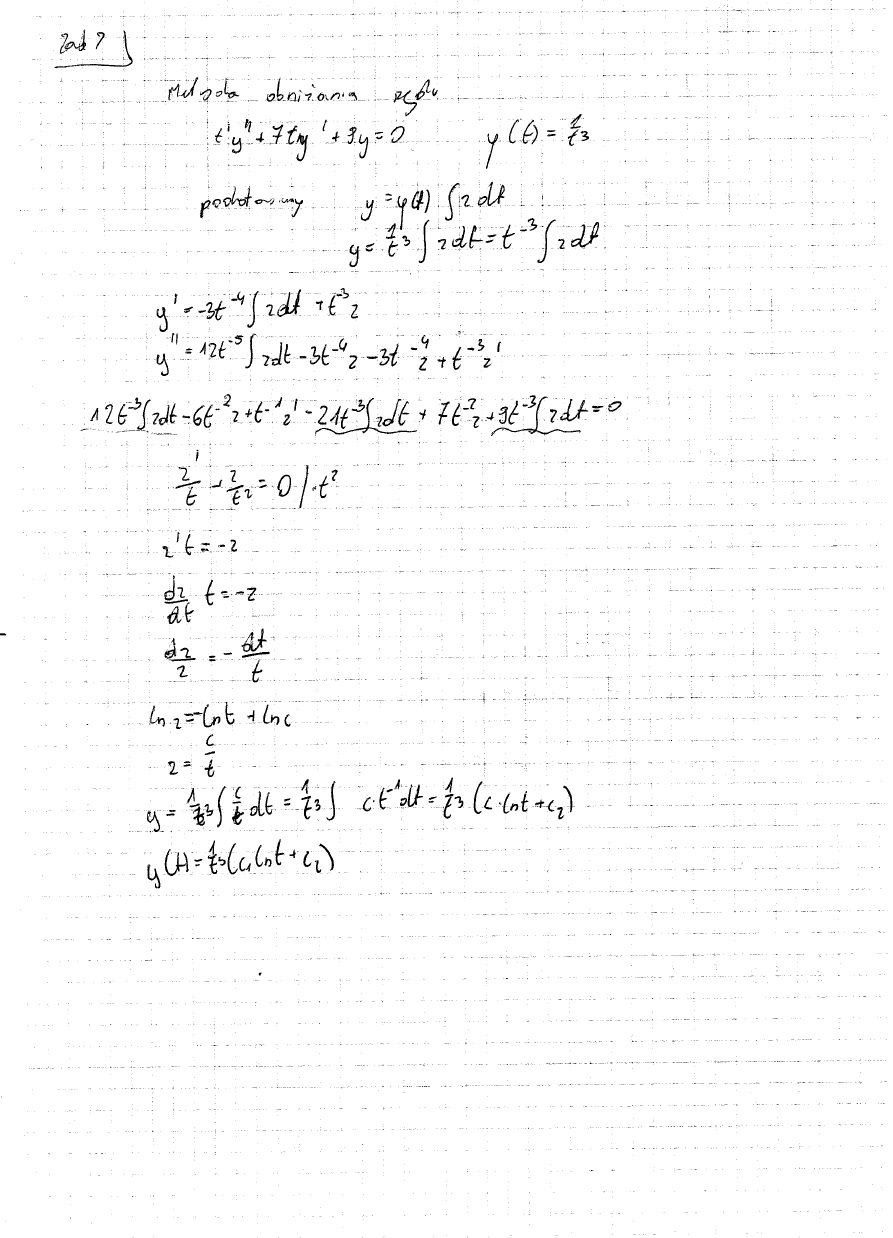 Zad 7
Metoda obniżania rzędu
t'y'' + 7ty' + 9y = 0 φ(t) = 1/t³
podstawmy y = φ(t) ∫ z dt
y = 1/t³ ∫ z dt = t⁻³ ∫ z dt
y' = -3t⁻⁴ ∫ z dt + t⁻³ z
y'' = 12t⁻⁵ ∫ z dt - 3t⁻⁴ z - 3t⁻⁴ z + t⁻³ z'
12t⁻³ ∫ z dt - 6t⁻² z + t⁻¹ z' - 21t⁻³ ∫ z dt + 7t⁻² z + 9t⁻³ ∫ z dt = 0
z'/t + z/t² = 0 / · t²
z't = -z
dz/dt t = -z
dz/z = - dt/t
ln z = -ln t + ln c
z = c/t
y = 1/t³ ∫ c/t dt = 1/t³ ∫ c·t⁻¹ dt = 1/t³ (c·ln t + c₂)
y(t) = 1/t³ (c₁ ln t + c₂)